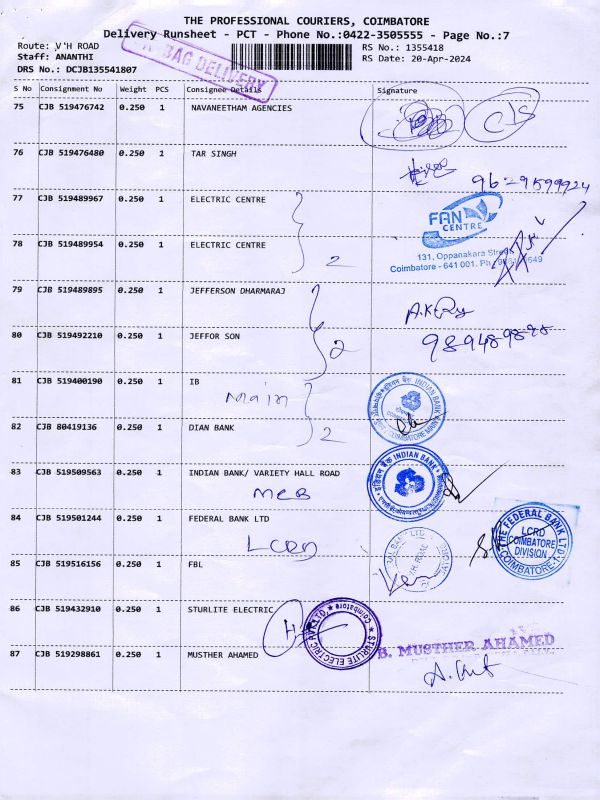 THE PROFESSIONAL COURIERS, COIMBATORE
Delivery Runsheet - PCT - Phone No.:0422-3505555 - Page No.:7
Route: V'H ROAD
RS No.: 1355418
Staff: ANANTHI
RS Date: 20-Apr-2024
DRS No.: DCJB135541807
BAG DELIVERY
S No Consignment No Weight PCS Consignee Details Signature
75 CJB 519476742 0.250 1 NAVANEETHAM AGENCIES
CJS
76 CJB 519476480 0.250 1 TAR SINGH
77 CJB 519489967 0.250 1 ELECTRIC CENTRE
FAN
CENTRE
131, Oppanakara Street
Coimbatore - 641 001. Ph
78 CJB 519489954 0.250 1 ELECTRIC CENTRE
2
79 CJB 519489895 0.250 1 JEFFERSON DHARMARAJ
80 CJB 519492210 0.250 1 JEFFOR SON
2
81 CJB 519400190 0.250 1 IB
Main
INDIAN BANK
COIMBATORE MAIN
82 CJB 80419136 0.250 1 DIAN BANK
2
83 CJB 519509563 0.250 1 INDIAN BANK/ VARIETY HALL ROAD
इंडियन बैंक INDIAN BANK
MCB
84 CJB 519501244 0.250 1 FEDERAL BANK LTD
LCRD
THE FEDERAL BANK LTD.
LCRD
COIMBATORE
DIVISION
COIMBATORE-1
85 CJB 519516156 0.250 1 FBL
86 CJB 519432910 0.250 1 STURLITE ELECTRIC
STURLITE ELECTRIC PVT. LTD. Coimbatore
87 CJB 519298861 0.250 1 MUSTHER AHAMED
B. MUSTHER AHAMED